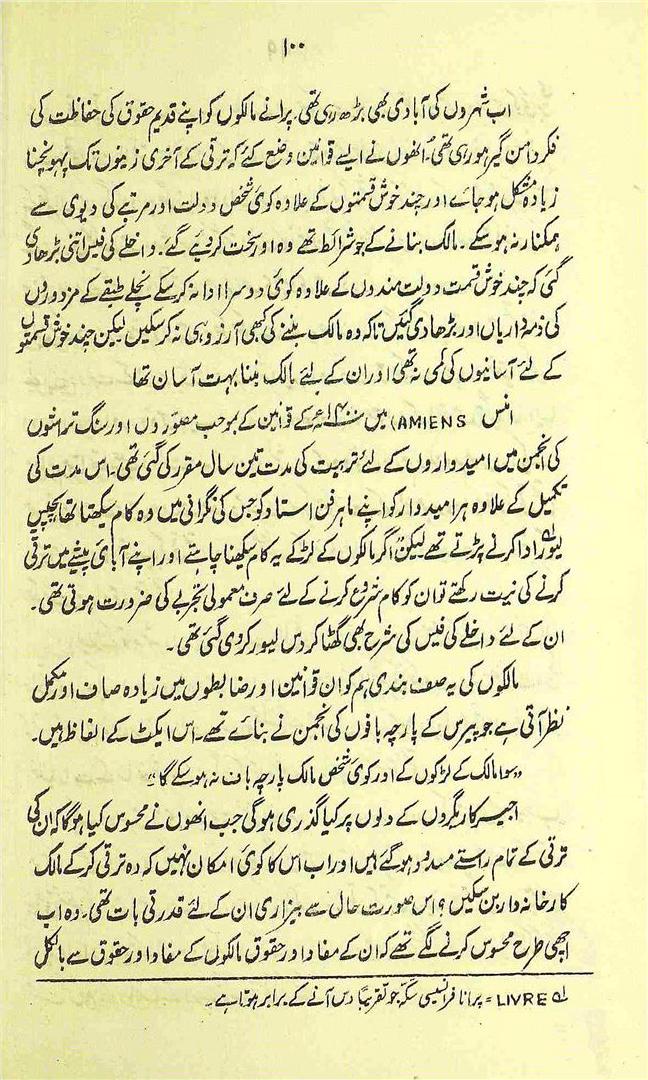 ۱۰۰
اب شہروں کی آبادی بھی بڑھ رہی تھی۔ پرانے مالکوں کو اپنے قدیم حقوق کی حفاظت کی
فکر دامن گیر ہو رہی تھی۔ انھوں نے ایسے قوانین وضع کئے کہ ترقی کے آخری زینوں تک پہونچنا
زیادہ مشکل ہو جائے اور چند خوش قسمتوں کے علاوہ کوئی شخص دولت اور مرتبے کی دیوی سے
ہمکنار نہ ہو سکے۔ مالک بنانے کے جو شرائط تھے وہ اور سخت کر دیے گئے۔ داخلے کی فیس اتنی بڑھا دی
گئی کہ چند خوش قسمت دولت مندوں کے علاوہ کوئی دوسرا ادا نہ کر سکے نچلے طبقے کے مزدوروں
کی ذمہ داریاں اور بڑھا دی گئیں تاکہ وہ مالک بننے کی کبھی آرزو ہی نہ کر سکیں لیکن چند خوش قسمتوں
کے لئے آسانیوں کی کمی نہ تھی اور ان کے لئے مالک بننا بہت آسان تھا
انس (AMIENS میں ۱۴۰۰ء کے قوانین کے بموجب مصوّروں اور سنگ تراشوں
کی انجمن میں امیدواروں کے لئے تربیت کی مدت تین سال مقرر کی گئی تھی۔ اس مدت کی
تکمیل کے علاوہ ہر امیدوار کو اپنے ماہر فن استاد کو جس کی نگرانی میں وہ کام سیکھتا تھا پچیس
لیور۱ ادا کرنے پڑتے تھے لیکن "اگر مالکوں کے لڑکے یہ کام سیکھنا چاہتے اور اپنے آبائی پیشے میں ترقی
کرنے کی نیت رکھتے تو ان کو کام شروع کرنے کے لئے صرف معمولی تجربے کی ضرورت ہوتی تھی۔
ان کے لئے داخلے کی فیس کی شرح بھی گھٹا کر دس لیور کر دی گئی تھی۔
مالکوں کی یہ صف بندی ہم کو ان قوانین اور ضابطوں میں زیادہ صاف اور مکمل
نظر آتی ہے جو پیرس کے پارچہ بافوں کی انجمن نے بنائے تھے۔ اس ایکٹ کے الفاظ ہیں۔
"سوا مالک کے لڑکوں کے اور کوئی شخص مالک پارچہ باف نہ ہو سکے گا"
اجیر کاریگروں کے دلوں پر کیا گذری ہوگی جب انھوں نے محسوس کیا ہوگا کہ ان کی
ترقی کے تمام راستے مسدود ہو گئے ہیں اور اب اس کا کوئی امکان نہیں کہ وہ ترقی کر کے مالک
کارخانہ دار بن سکیں؟ اس صورت حال سے بیزاری ان کے لئے قدرتی بات تھی۔ وہ اب
اچھی طرح محسوس کرنے لگے تھے کہ ان کے مفاد اور حقوق مالکوں کے مفاد اور حقوق سے بالکل
۱ LIVRE = پرانا فرانسیسی سکّہ جو تقریباً دس آنے کے برابر ہوتا ہے۔